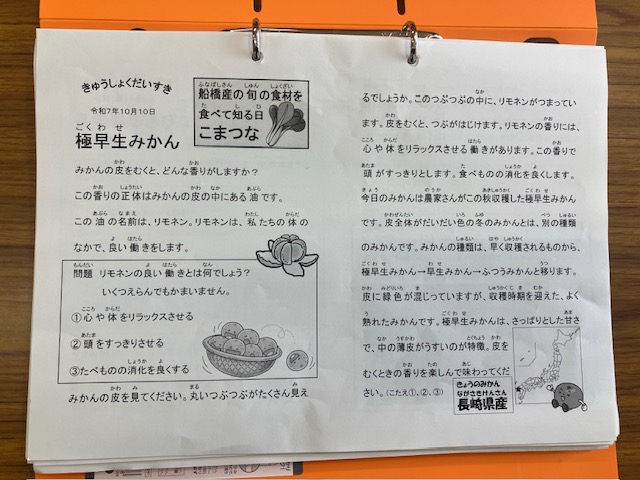 きゅうしょくだいすき
令和7年10月10日
極早生みかん
船橋産の旬の食材を
食べて知る日
こまつな
みかんの皮をむくと、どんな香りがしますか？
この香りの正体はみかんの皮の中にある油です。
この油の名前は、リモネン。リモネンは、私たちの体の
なかで、良い働きをします。
問題 リモネンの良い働きとは何でしょう？
いくつえらんでもかまいません。
①心や体をリラックスさせる
②頭をすっきりさせる
③たべものの消化を良くする
みかんの皮を見てください。丸いつぶつぶがたくさん見え
るでしょうか。このつぶつぶの中に、リモネンがつまってい
ます。皮をむくと、つぶがはじけます。リモネンの香りには、
心や体をリラックスさせる働きがあります。この香りで
頭がすっきりとします。食べものの消化を良くします。
今日のみかんは農家さんがこの秋収穫した極早生みかん
です。皮全体がだいだい色の冬のみかんとは、別の種類
のみかんです。みかんの種類は、早く収穫されるものから、
極早生みかん→早生みかん→ふつうみかんと移ります。
皮に緑色が混じっていますが、収穫時期を迎えた、よく
熟れたみかんです。極早生みかんは、さっぱりとした甘さ
で、中の薄皮がうすいのが特徴。皮を
むくときの香りを楽しんで味わってくだ
さい。(こたえ①、②、③)
きょうのみかん
ながさきけんさん
長崎県産